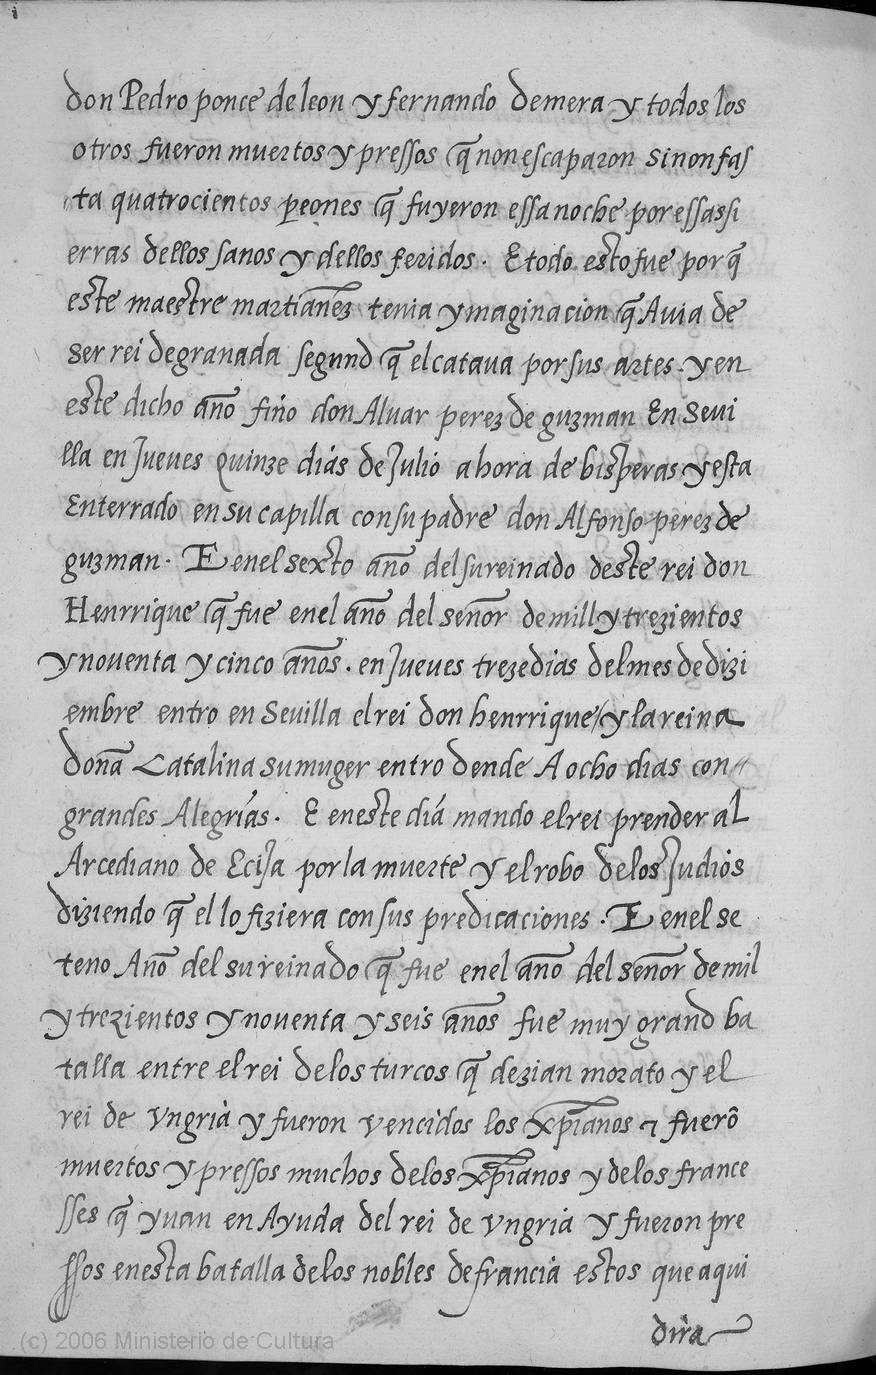 don Pedro ponce de leon y fernando de mera y todos los
otros fueron muertos y pressos q̃ non escaparon sinon fas
ta quatrocientos peones q̃ fuyeron essa noche por essas si
erras dellos sanos y dellos feridos. E todo esto fue por q̃
este maestre martianez tenia ymaginacion q̃ Auia de
ser rei de granada segund q̃ el catava por sus artes. y en
este dicho año fiño don Aluar perez de guzman En Seui
lla en Jueves Quinze dias de Julio a hora de bisperas y esta
Enterrado en su capilla con su padre don Alfonso perez de
guzman. E en el sexto año del su reinado deste rei don
Henrrique q̃ fue en el año del señor de mill y trezientos
y noventa y cinco años. en Jueves treze dias del mes de dizi
embre entro en Sevilla el rei don henrrique / y la reina
doña Catalina su muger entro dende A ocho dias con
grandes Alegrias. E en este dia mando el rei prender al
Arcediano de Ecija por la muerte y el robo de los Judios
diziendo q̃ el lo fiziera con sus predicaciones. E en el se
teno Año del su reinado q̃ fue en el año del señor de mil
y trezientos y noventa y seis años fue muy grand ba
talla entre el rei de los turcos q̃ dezian morato y el
rei de Vngria y fueron vencidos los xp̃ianos ⁊ fuerõ
muertos y pressos muchos de los xp̃ianos y de los france
sses q̃ yuan en Ayuda del rei de Vngria y fueron pre
ssos en esta batalla de los nobles de francia estos que aqui
dira
(c) 2006 Ministerio de Cultura